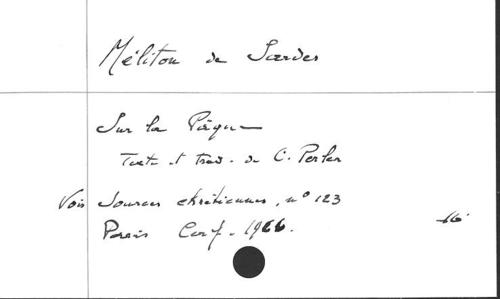 Méliton de Sardes
Sur la Pâque
Texte et trad. de C. Perler
Voir Sources chrétiennes, n° 123
Paris Cerf. 1966.